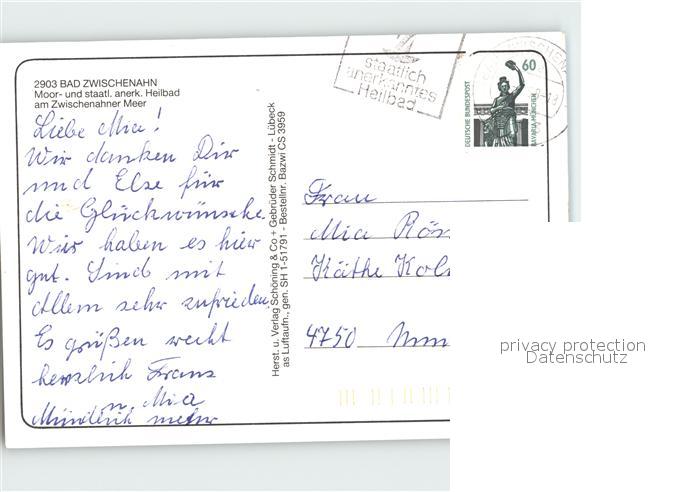 2903 BAD ZWISCHENAHN
Moor- und staatl. anerk. Heilbad
am Zwischenahner Meer
Liebe Mia!
Wir danken Dir
und Else für
die Glückwünsche.
Wir haben es hier
gut. Sind mit
Allem sehr zufrieden.
Es grüßen recht
herzlich Franz
u. Mia
Mündlich mehr
Herst. u. Verlag Schöning & Co + Gebrüder Schmidt - Lübeck
as Luftaufn., gen. SH 1-51791 - Bestellnr. Bazwi CS 3959
staatlich
anerkanntes
Heilbad
60
DEUTSCHE BUNDESPOST
BAVARIA MÜNCHEN
Frau
Mia Rös
Käthe Kol
4750
privacy protection
Datenschutz